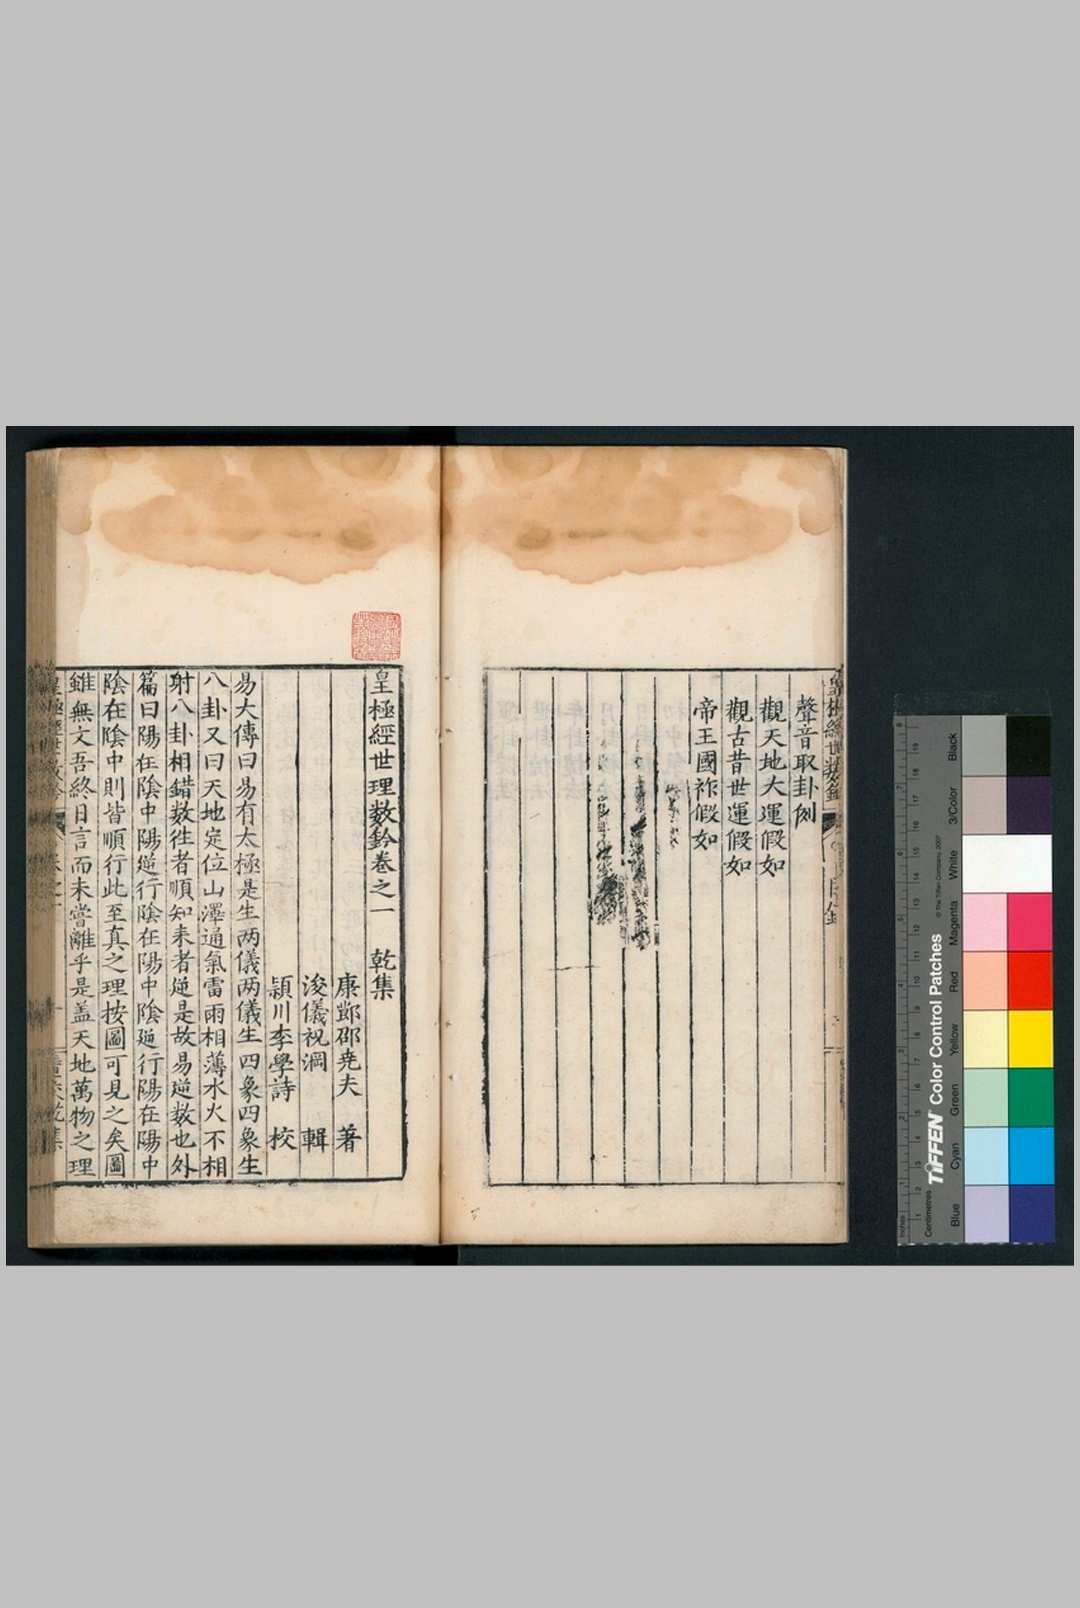 聲音取卦例
觀天地大運假如
觀古昔世運假如
帝王國祚假如
皇極經世理數鈐卷之一 乾集
康鄴邵堯夫 著
浚儀祝淵 輯
頴川李學詩 校
易大傳曰易有太極是生两儀两儀生四象四象生
八卦又曰天地定位山澤通氣雷雨相薄水火不相
射八卦相錯数徃者順知来者逆是故易逆数也外
篇曰陽在陰中陽逆行陰在陽中陰逆行陽在陽中
陰在陰中則皆順行此至真之理按圖可見之矣圖
雖無文吾終日言而未嘗離乎是盖天地萬物之理
Black
3/Color
White
Magenta
Red
Yellow
Green
Cyan
Blue
TIFFEN Color Control Patches
© The Tiffen Company, 2007
Centimetres
Inches